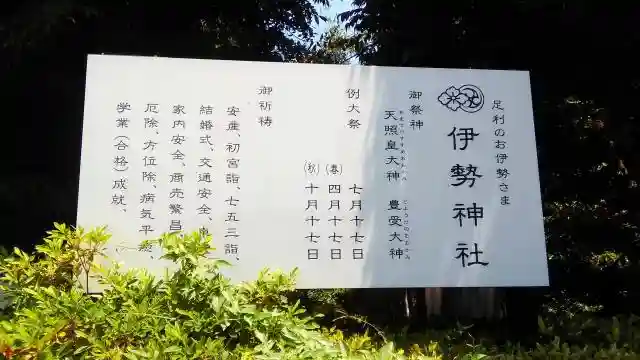 足利のお伊勢さま
伊勢神社
御祭神
天照皇大神 豊受大神
例大祭
七月十七日
(春) 四月十七日
(秋) 十月十七日
御祈祷
安産、初宮詣、七五三詣、
結婚式、交通安全、
家内安全、商売繁昌
厄除、方位除、病気平癒
学業(合格)成就、